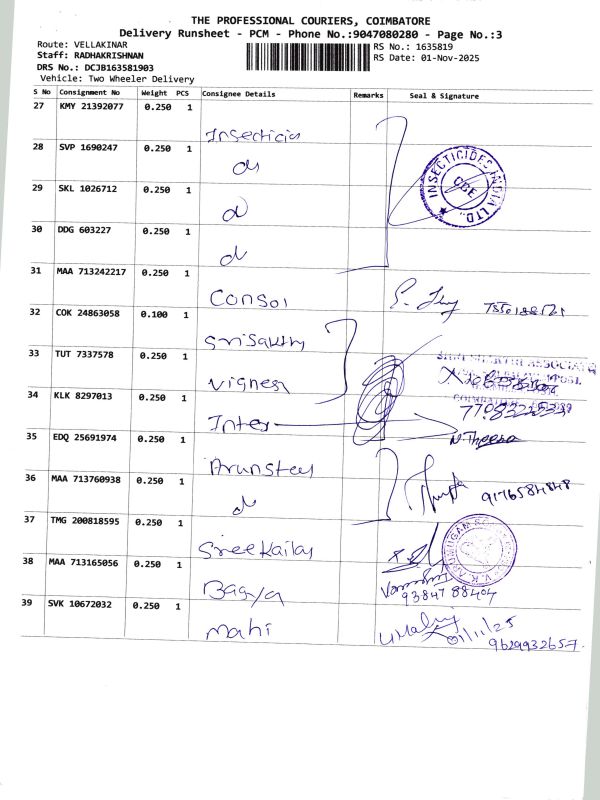 THE PROFESSIONAL COURIERS, COIMBATORE
Delivery Runsheet - PCM - Phone No.:9047080280 - Page No.:3
Route: VELLAKINAR
RS No.: 1635819
Staff: RADHAKRISHNAN
RS Date: 01-Nov-2025
DRS No.: DCJB163581903
Vehicle: Two Wheeler Delivery
S No Consignment No Weight PCS Consignee Details Remarks Seal & Signature
27 KMY 21392077 0.250 1
Insecticis
28 SVP 1690247 0.250 1
INSECTICIDES INDIA LTD.
CBE
29 SKL 1026712 0.250 1
30 DDG 603227 0.250 1
31 MAA 713242217 0.250 1
Consol
32 COK 24863058 0.100 1
Srisakthy
33 TUT 7337578 0.250 1
Vignesh
34 KLK 8297013 0.250 1
Inter
35 EDQ 25691974 0.250 1
Arunstees
36 MAA 713760938 0.250 1
9176584848
37 TMG 200818595 0.250 1
Sreekailas
38 MAA 713165056 0.250 1
Bagya
9384788404
39 SVK 10672032 0.250 1
Mahi
01/11/25
9629932657